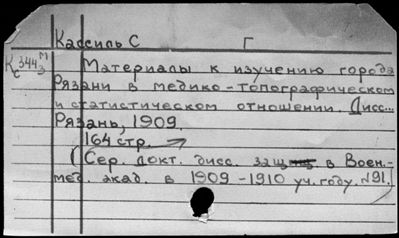 Кассиль С Г
К 344 М
с З
Материалы к изучению города
Рязани в медико-топографическом
и статистическом отношении. Дисс..
Рязань, 1909.
164 стр.
(Сер. докт. дисс. защ в Воен.-
мед. акад. в 1909-1910 уч. году. №91.)